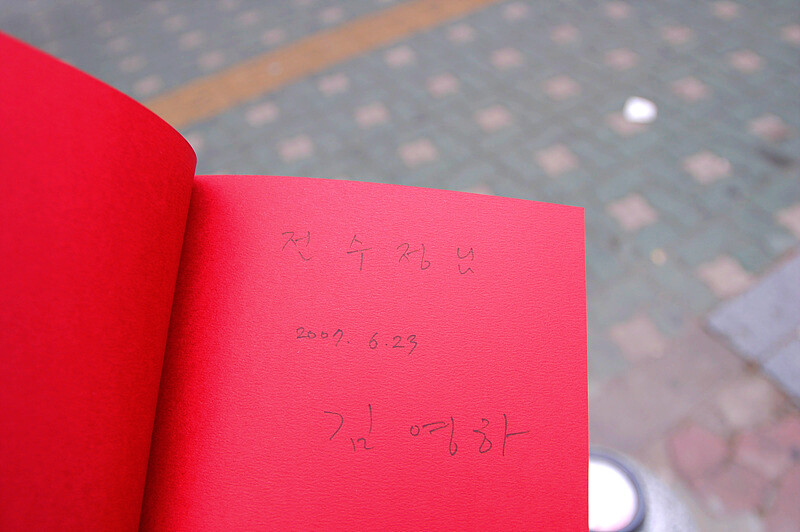 전 수 정 님
2007. 6.23
김 영하